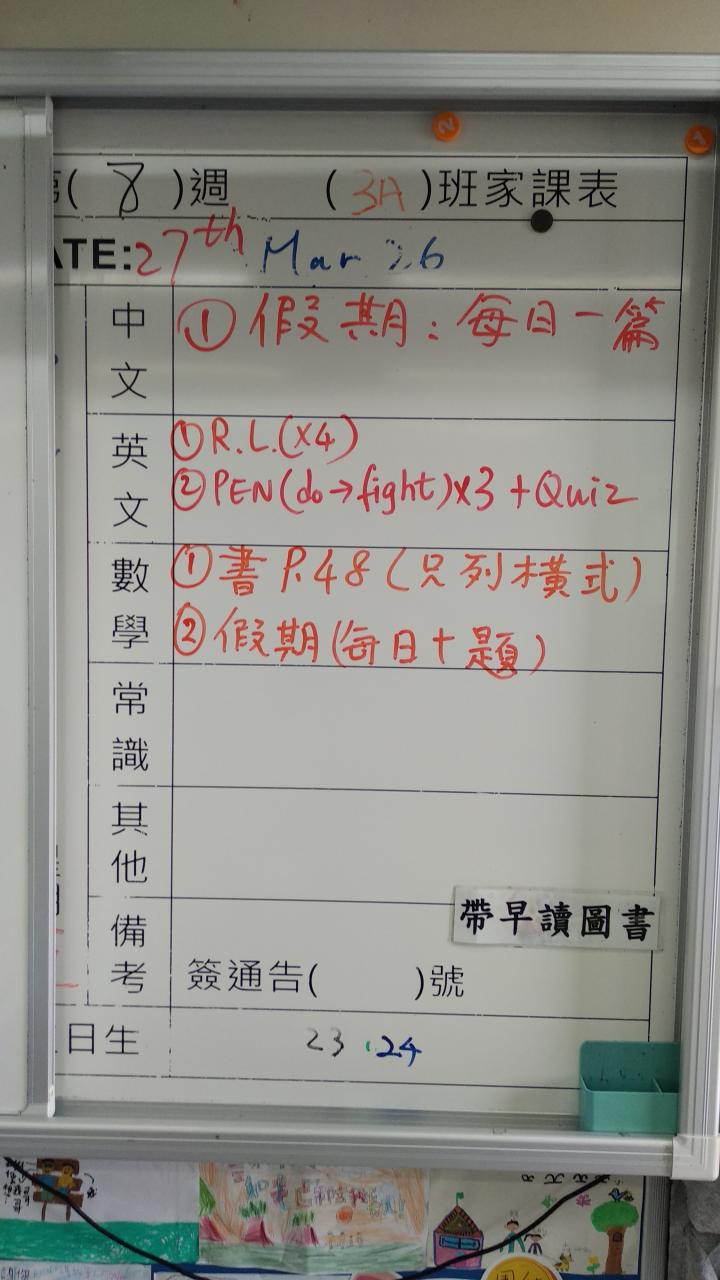 ( 8 )週 ( 3A )班家課表
ATE: 27th Mar 26
中文
① 假期：每日一篇
英文
① R.L.(x4)
② PEN(do→fight)x3 + Quiz
數學
① 書 P.48 (只列橫式)
② 假期(每日十題)
常識
其他
備考
帶早讀圖書
簽通告( )號
日生 23 . 24